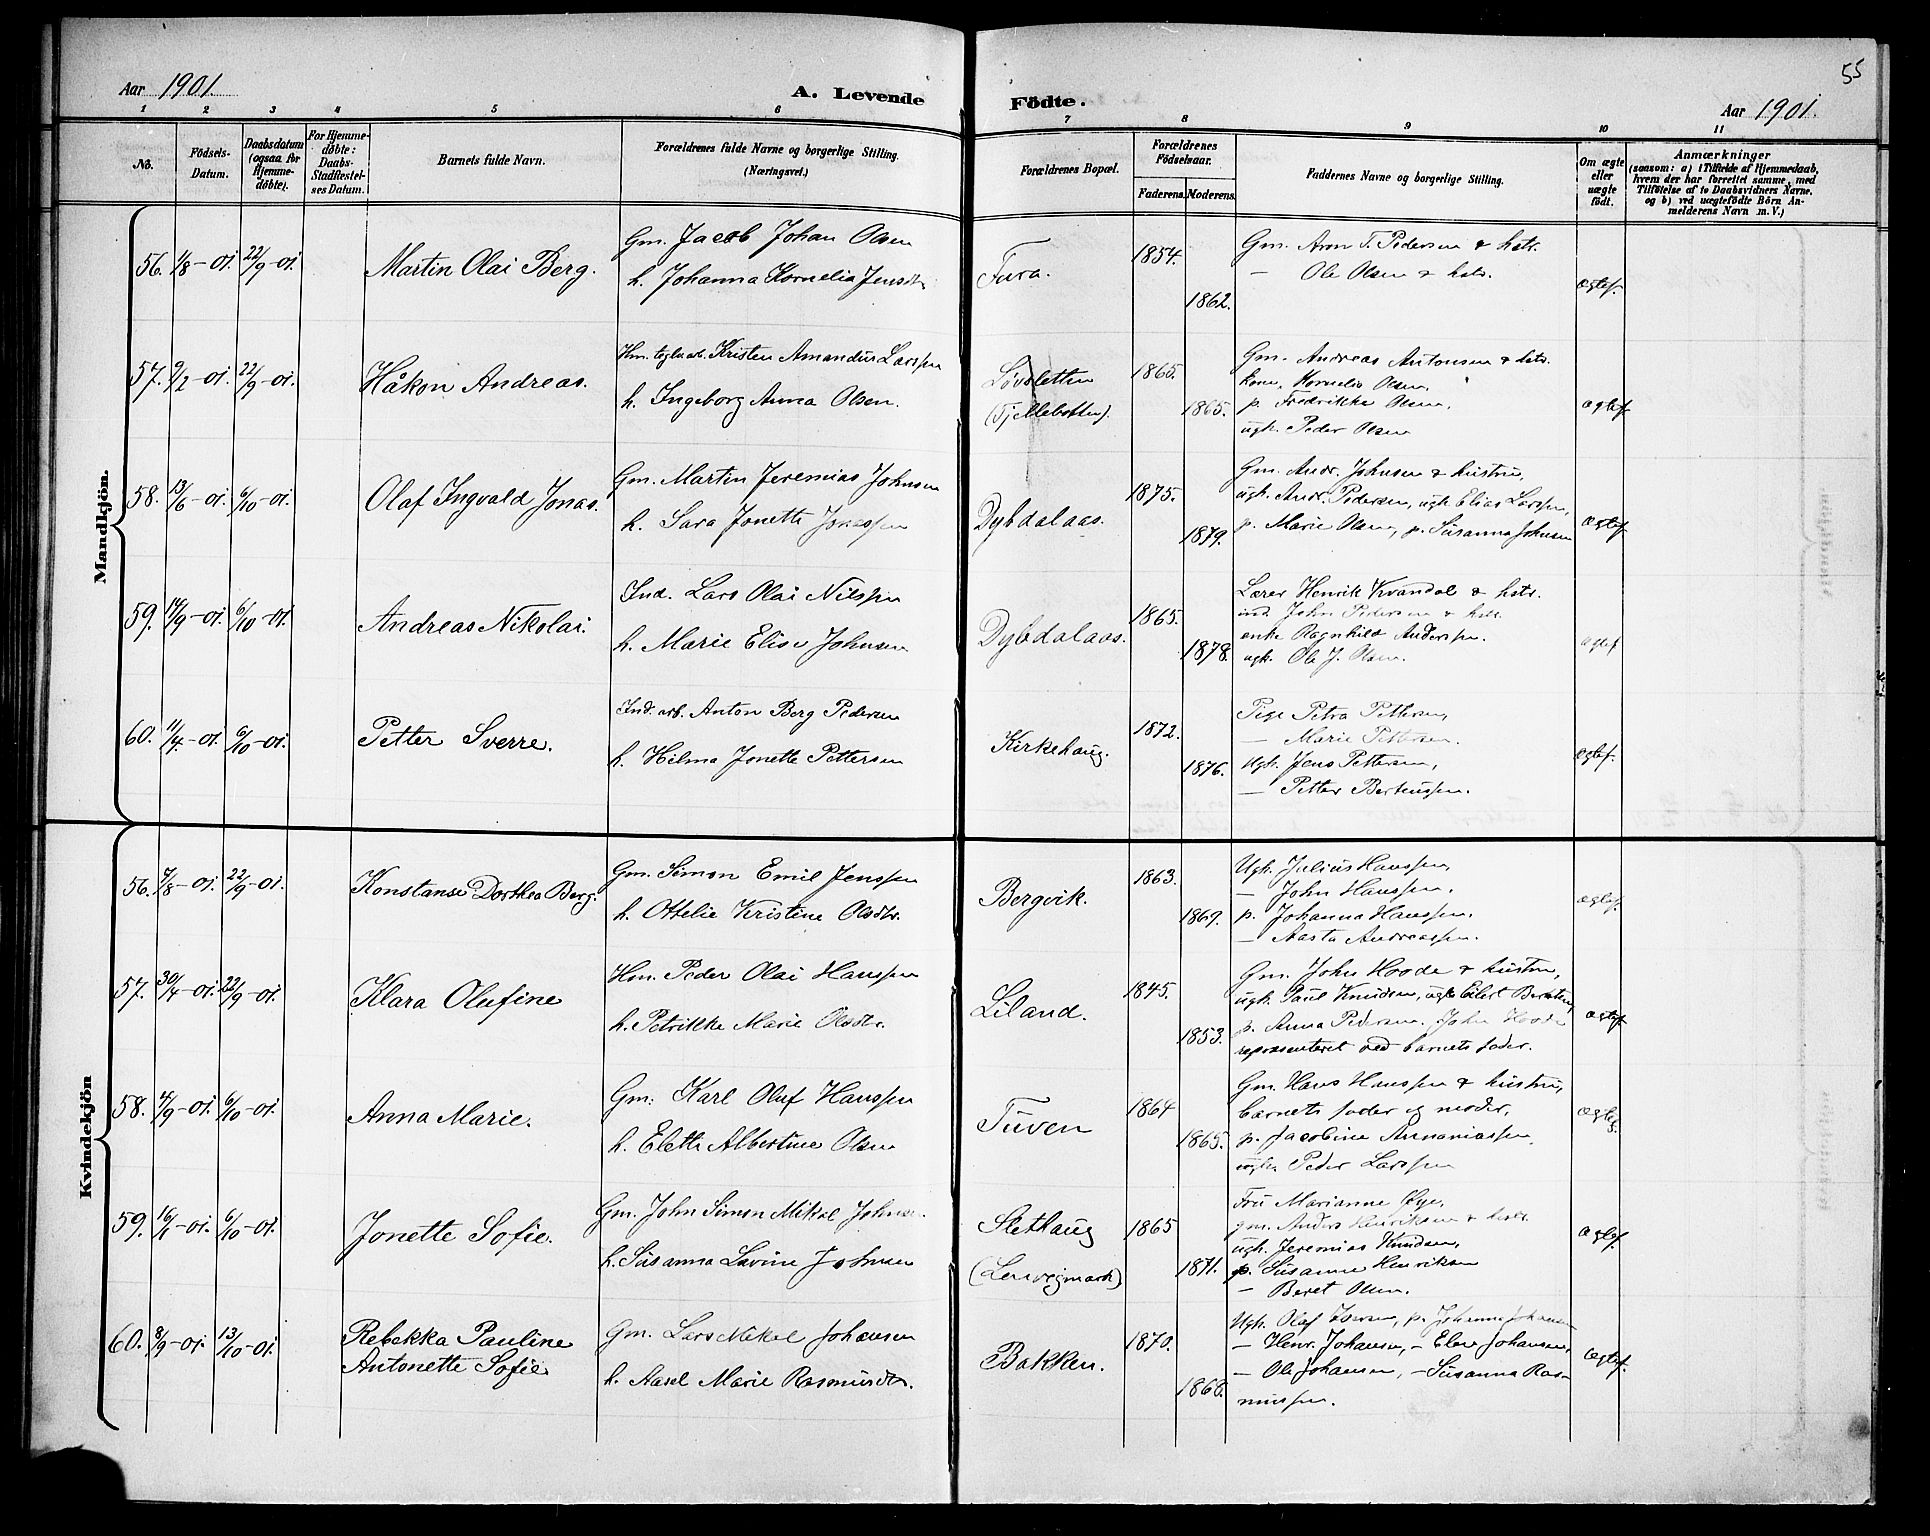 55
Aar 1901. A. Levende Födte. Aar 1901.
1 2 3 4 5 6 7 8 9 10 11
No. Födsels-Datum. Daabsdatum (ogsaa för Hjemme-döbte). For Hjemme-döbte: Daabs-Stadfæstelses Datum. Barnets fulde Navn. Forældrenes fulde Navne og borgerlige Stilling. (Næringsvei.) Forældrenes Bopæl. Forældrenes Födselsaar. Faderens. Moderens. Faddernes Navne og borgerlige Stilling. Om ægte eller uægte födt. Anmærkninger (saasom: a) i Tilfælde af Hjemmedaab, hvem der har forrettet samme, med Tilföielse af to Daabsvidners Navne, og b) ved uægtefödte Börn Anmelderens Navn m. V.)
Mandkjön.
56. 1/8-01. 22/9-01. Martin Olai Berg. Gm. Jacob Johan Olsen
h. Johanna Kornelia Jensdtr
Fura. 1854. 1862.
Gm. Aron T. Pedersen & hstr.
— Ole Olsen & hstr.
ægtef.
57. 9/2-01. 22/9-01. Håkon Andreas. Hm. teglarb. Kristen Amandus Larssen
h. Ingeborg Anna Olsen.
Løvsletten
(Fjellebotten). 1865. 1865.
Gm. Andreas Antonsen & hstr.
kone Kornelia Olsen.
p. Fredrikke Olsen.
ugk. Peder Olsen
ægtef.
58. 13/6-01. 6/10-01. Olaf Ingvald Jonas. Gm. Martin Jeremias Johnsen
h. Sara Jonette Jonassen
Dybdalaas. 1875. 1879.
Gm. Andr. Johnsen & hustru,
ugk. Andr. Pedersen, ugk Elias Larssen,
p. Marie Olsen, p. Susanna Johnsen
ægtef.
59. 14/9-01. 6/10-01. Andreas Nikolai. Ind. Lars Olai Nilssen
h. Marie Elise Johnsen
Dybdalaas. 1865. 1878.
Lærer Henrik Kvandal & hstr.
ind. John Pedersen & hstr.
enke Ragnhild Anderssen.
ugk. Ole J. Olsen.
ægtef.
60. 11/4-01. 6/10-01. Petter Sverre. Ind. arb. Anton Berg Pedersen
h. Hilma Jonette Pettersen
Kirkehaug. 1872. 1876.
Pige Petra Pettersen,
— Marie Pettersen.
Ugk. Jens Pettersen,
— Petter Berteussen.
ægtef.
Kvindekjön
56. 7/8-01. 22/9-01. Konstanse Dorthea Berg. Gm. Simon Emil Jenssen
h. Ottelie Kristine Olsdtr.
Bergvik. 1863. 1869.
Ugk. Julius Hanssen,
— John Hanssen.
p. Johanna Hanssen.
— Aasta Andreassen.
ægtef.
57. 30/4-01. 22/9-01. Klara Olufine Hm. Peder Olai Hanssen
h. Petrikke Marie Olsdtr.
Liland. 1845. 1853.
Gm. John Hoode & hustru,
ugk. Paul Knudsen, ugk Eilert Berntsen,
p. Anna Pedersen. John Hoode
repræsenteret ved barnets fader.
ægtef.
58. 4/9-01. 6/10-01. Anna Marie. Gm. Karl Oluf Hanssen
h. Eleth Albertine Olsen
Tuven 1864 1865.
Gm. Hans Hanssen & hustru,
barnets fader og moder,
p. Jacobine Annaniassen,
ugk. Peder Larssen
ægtef.
59. 16/1-01. 6/10-01. Jonette Sofie. Gm. John Simon Mikal Johnse.
h. Susanna Lovine Johnsen
Slethaug
(Lenvigmark) 1865 1871.
Fru Marianne Øye,
gm. Anders Henriksen & hstr.
ugk. Jeremias Knudsen,
p. Susanne Henriksen
— Beret Olsen.
ægtef.
60. 8/9-01. 13/10-01. Rebekka Pauline
Antonette Sofie Gm. Lars Mikal Johansen
h. Aasel Marie Rasmusdtr.
Bakken. 1870. 1868.
Ugk. Olaf Iversen, p. Johanna Johansen
— Henr. Johansen, — Elen Johansen,
— Ole Johansen, — Susanna Ras-
mussen.
ægtef.